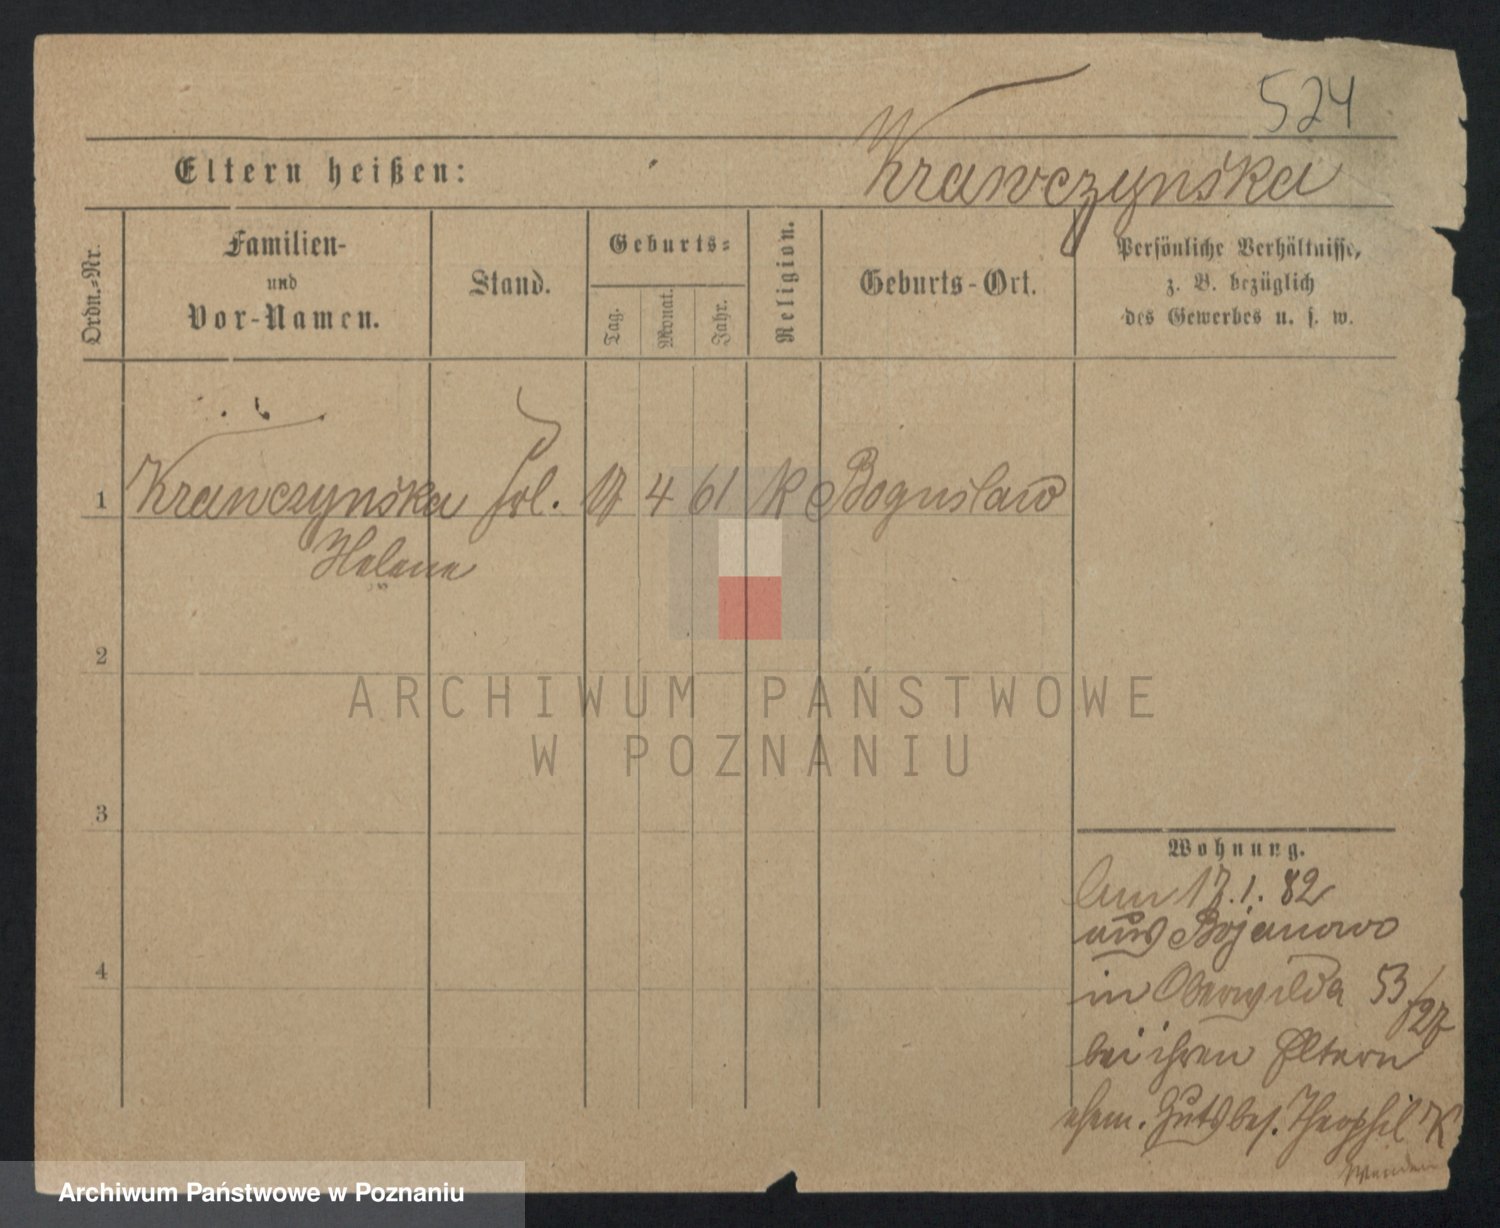 524
Eltern heißen: Krawczyńska
Ordn.-Nr.
Familien-
und
Vor-Namen.
Stand.
Geburts-
Tag.
Monat.
Jahr.
Religion.
Geburts-Ort.
Persönliche Verhältnisse,
z. B. bezüglich
des Gewerbes u. s. w.
1 Krawczyńska Frl. 17 4 61 K Boguslaw
Helene
2
ARCHIWUM PAŃSTWOWE
W POZNANIU
3
4
Wohnung.
Am 17.1.82
aus Bojanowo
in Oberwilda 53/27
bei ihren Eltern
ehem. Gutsbes. Theophil K
Archiwum Państwowe w Poznaniu